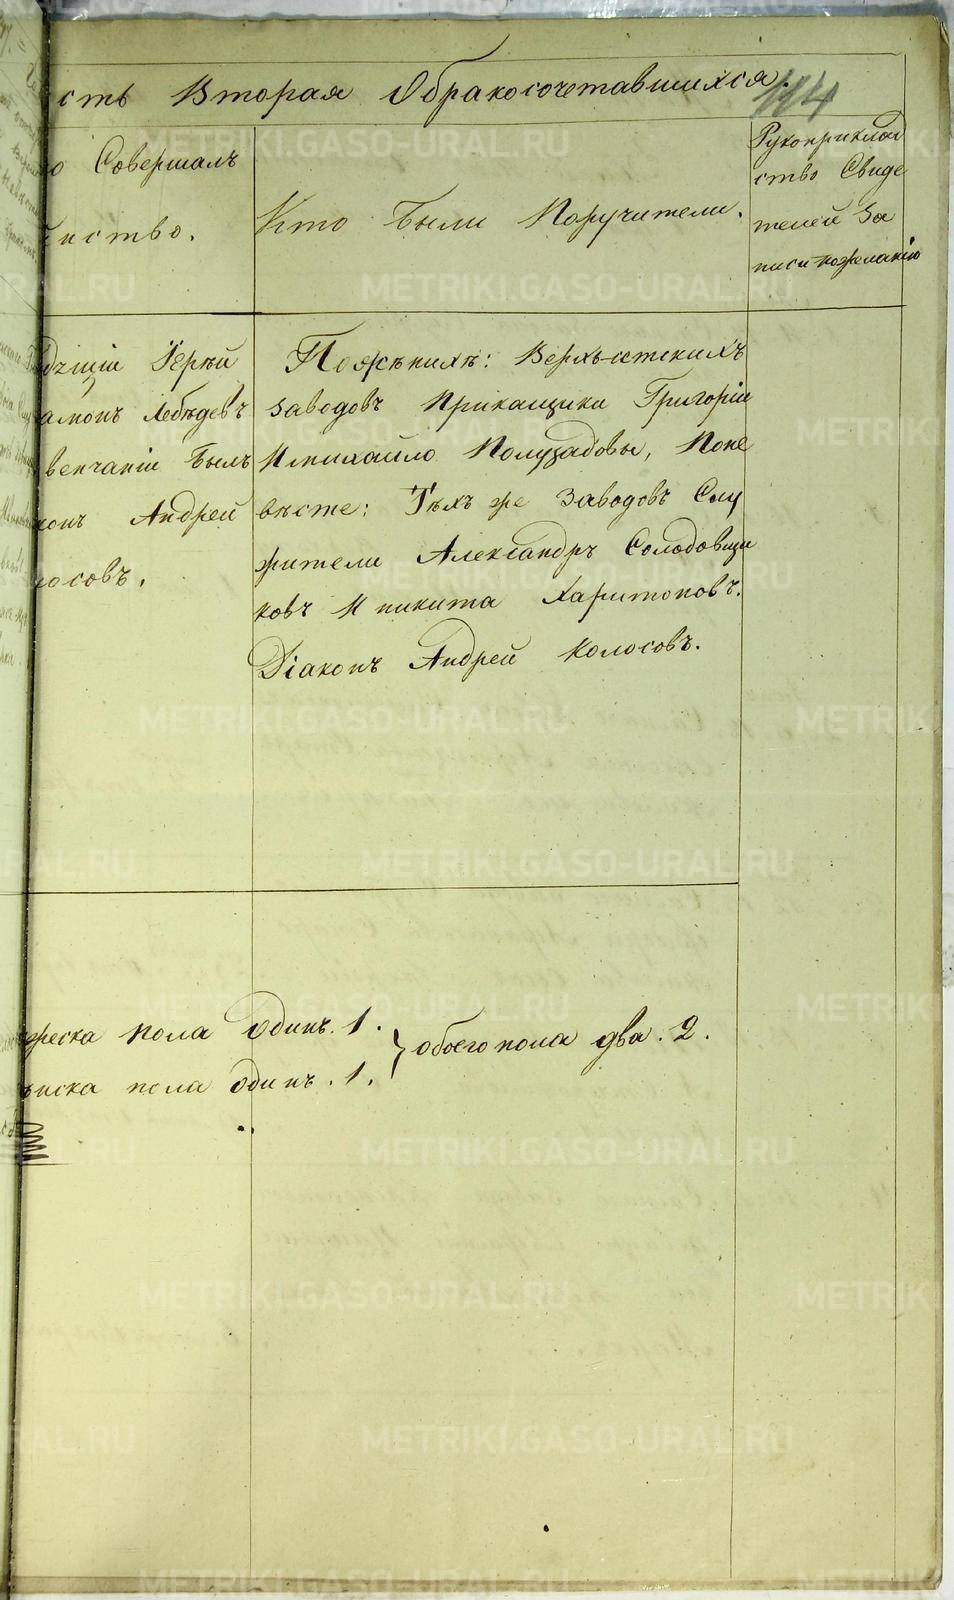 сть Вторая О бракосочетавшихся.
114
о Совершалъ
инство.
Кто Были Поручители.
Рукоприклад
ство Свиде
телей За
писи по желанію
Іерей
Лебедевъ
венчаніи Былъ
конъ Андрей
лосовъ.
По женихѣ: Верхъ-Исетскихъ
Заводовъ Прикащики Григорій
И михайло Полузадовы, По не
вѣсте: Тѣхъ же Заводовъ Слу
жители Александръ Солодовщи
ковъ И никита Харитоновъ.
Діаконъ Андрей Колосовъ.
жеска пола Одинъ. 1.
нска пола Одинъ. 1.
} обоего пола два. 2.
METRIKI.GASO-URAL.RU